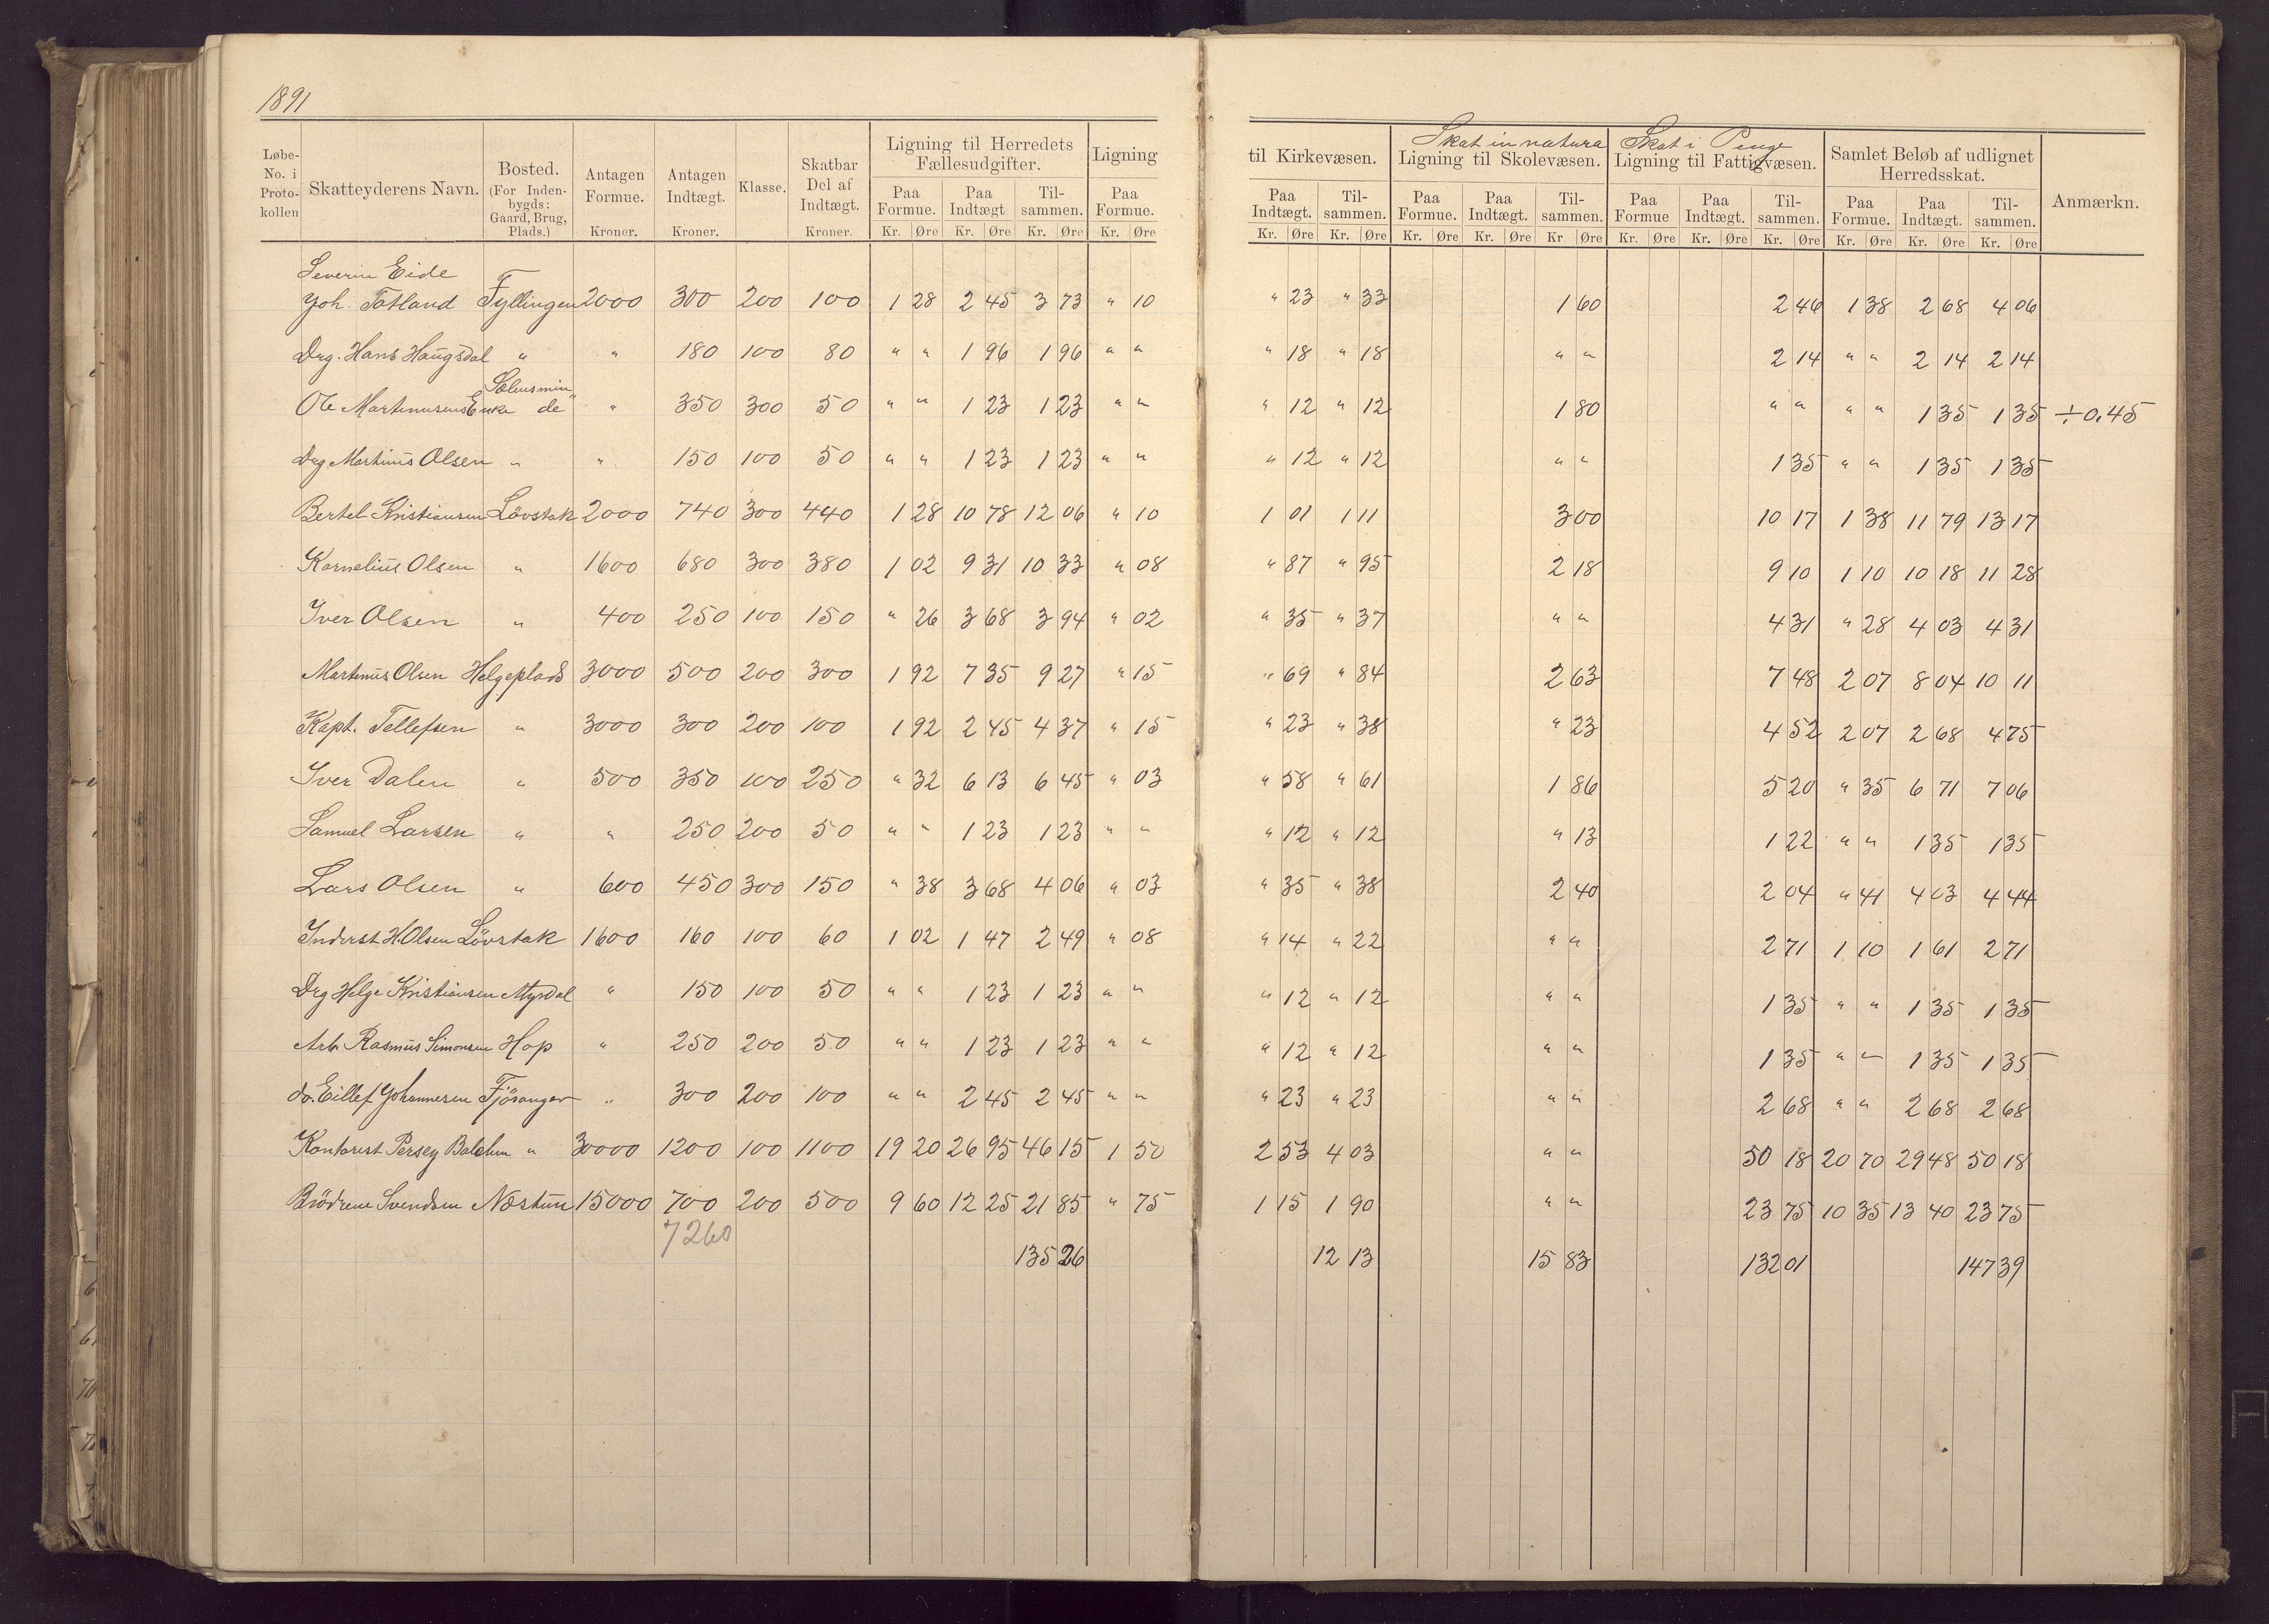 1891
Løbe-No. i Protokollen | Skatteyderens Navn. | Bosted. (For Indenbygds: Gaard, Brug, Plads.) | Antagen Formue. Kroner. | Antagen Indtægt. Kroner. | Klasse. | Skatbar Del af Indtægt. Kroner. | Ligning til Herredets Fællesudgifter. Paa Formue. Kr. Øre | Paa Indtægt Kr. Øre | Til-sammen. Kr. Øre | Ligning Paa Formue. Kr. Øre | til Kirkevæsen. Paa Indtægt. Kr. Øre | Til-sammen. Kr. Øre | Skat in natura Ligning til Skolevæsen. Paa Formue. Kr. Øre | Paa Indtægt. Kr. Øre | Til-sammen. Kr Øre | Skat i Penge Ligning til Fattigvæsen. Paa Formue Kr. Øre | Paa Indtægt. Kr. Øre | Til-sammen. Kr. Øre | Samlet Beløb af udlignet Herredsskat. Paa Formue. Kr. Øre | Paa Indtægt. Kr. Øre | Til-sammen. Kr. Øre | Anmærkn.
Severin Eide
Joh. Totland Fyllingen 2000 300 200 100 1 28 2 45 3 73 " 10 " 23 " 33 1 60 2 46 1 38 2 68 4 06
Drg. Hans Haugsdal " " 180 100 80 " " 1 96 1 96 " " " 18 " 18 " " 2 14 " " 2 14 2 14
Sælensmin
Ole Martinusens Enke de " 350 300 50 " " 1 23 1 23 " " " 12 " 12 1 80 " " " " 1 35 1 35 ÷0.45
Drg. Martinus Olsen " " 150 100 50 " " 1 23 1 23 " " " 12 " 12 " " 1 35 " " 1 35 1 35
Bertel Kristiansen Lövstak 2000 740 300 440 1 28 10 78 12 06 " 10 1 01 1 11 3 00 10 17 1 38 11 79 13 17
Kornelius Olsen " 1600 680 300 380 1 02 9 31 10 33 " 08 " 87 " 95 2 18 9 10 1 10 10 18 11 28
Iver Olsen " 400 250 100 150 " 26 3 68 3 94 " 02 " 35 " 37 " " 4 31 " 28 4 03 4 31
Martinus Olsen Helgeplads 3000 500 200 300 1 92 7 35 9 27 " 15 " 69 " 84 2 63 7 48 2 07 8 04 10 11
Kapt. Tellefsen " 3000 300 200 100 1 92 2 45 4 37 " 15 " 23 " 38 " 23 4 52 2 07 2 68 4 75
Iver Dalen " 500 350 100 250 " 32 6 13 6 45 " 03 " 58 " 61 1 86 5 20 " 35 6 71 7 06
Samuel Larsen " " 250 200 50 " " 1 23 1 23 " " " 12 " 12 " 13 1 22 " " 1 35 1 35
Lars Olsen " 600 450 300 150 " 38 3 68 4 06 " 03 " 35 " 38 2 40 2 04 " 41 4 03 4 44
Inderst H. Olsen Lövstak 1600 160 100 60 1 02 1 47 2 49 " 08 " 14 " 22 " " 2 71 1 10 1 61 2 71
Drg Helge Kristiansen Myrdal " 150 100 50 " " 1 23 1 23 " " " 12 " 12 " " 1 35 " " 1 35 1 35
Arb. Rasmus Simonsen Hop " 250 200 50 " " 1 23 1 23 " " " 12 " 12 " " 1 35 " " 1 35 1 35
do. Eillef Johannesen Fjösanger " 300 200 100 " " 2 45 2 45 " " " 23 " 23 " " 2 68 " " 2 68 2 68
Kontorist Persey " 30000 1200 100 1100 19 20 26 95 46 15 1 50 2 53 4 03 " " 50 18 20 70 29 48 50 18
Brödrene Svendsen Næstun 15000 700 200 500 9 60 12 25 21 85 " 75 1 15 1 90 " " 23 75 10 35 13 40 23 75
7260
135 26 12 13 15 83 132 01 147 39